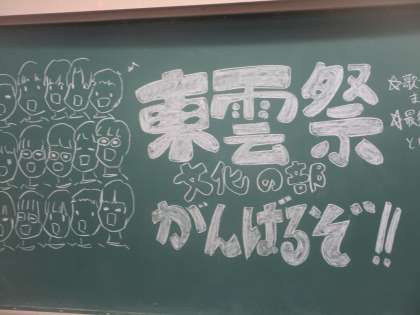 東雲祭
文化の部
がんばるぞ!!
☆歌